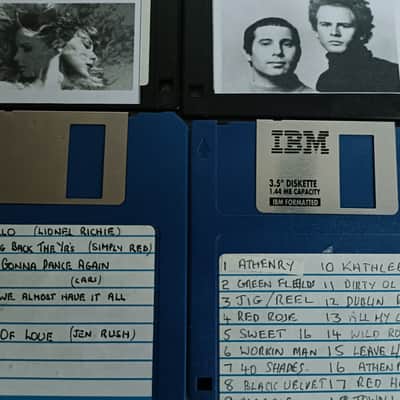 IBM
3.5" DISKETTE
1.44 MB CAPACITY
IBM FORMATTED
LO (LIONEL RICHIE)
G BACK THE YR'S (SIMPLY RED)
GONNA DANCE AGAIN
WE ALMOST HAVE IT ALL
OF LOVE (JEN RUSH)
1 ATHENRY 10 KATHLEE
2 GREEN FIELDS 11 DIRTY OL
3 JIG/REEL 12 DUBLIN
4 RED ROSE 13 ALL MY L
5 SWEET 16 14 WILD RO
6 WORKIN MAN 15 LEAVE
7 40 SHADES. 16 ATHEN
8 BLACK VELVET 17 RED H